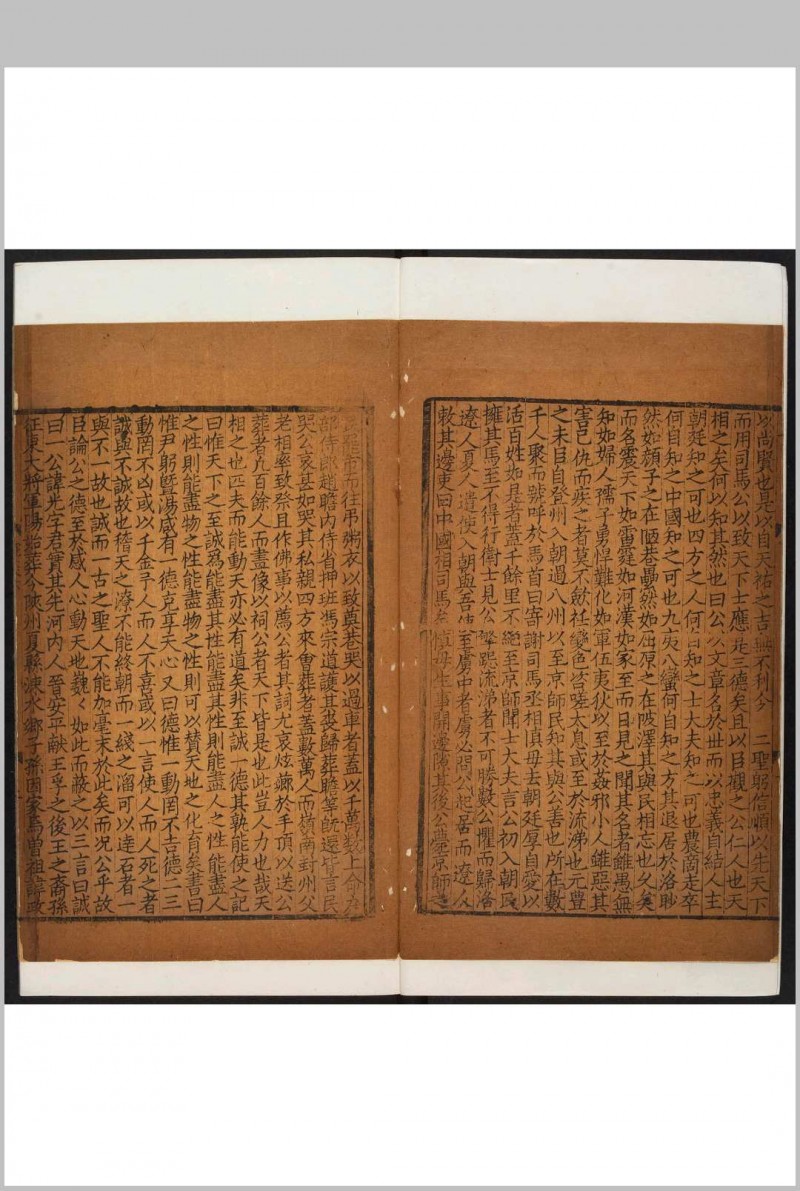 以尚賢也是以自天祐之吉無不利今　二聖躬信順以先天下
而用司馬公以致天下士應是三德矣且以臣觀之公仁人也天
相之矣何以知其然也曰公以文章名於世而以忠義自結人主
朝廷知之可也四方之人何自知之士大夫知之可也農商走卒
何自知之中國知之可也九夷八蠻何自知之方其退居於洛眇
然如顏子之在陋巷纍然如屈原之在陂澤其與民相忘也久矣
而名震天下如雷霆如河漢如家至而日見之聞其名者雖愚無
知如婦人孺子勇悍難化如軍伍夷狄以至於姦邪小人雖惡其
害己仇而疾之者莫不歛衽變色咨嗟太息或至於流涕也元豊
之末自登州入朝過八州以至京師民知其與公善也所在數
千人聚而號呼於馬首曰寄謝司馬丞相慎毋去朝廷厚自愛以
活百姓如是者蓋千餘里不絕至京師聞士大夫言公初入朝民
擁其馬至不得行衛士見公擎跽流涕者不可勝數公懼而歸洛
遼人夏人遣使入朝與吾使至虜中者虜必問公起居而遼人
敕其邊吏曰中國相司馬矣慎毋生事開邊隙其後公薨京師之
民罷市而往弔粥衣以致奠巷哭以過車者蓋以千萬數上命户
部侍郎趙瞻內侍省押班馮宗道護其喪歸葬瞻等旣還皆言民
哭公哀甚如哭其私親四方來會葬者蓋數萬人而嶺南封州父
老相率致祭且作佛事以薦公者其詞尤哀炷薌於手頂以送公
葬者九百餘人而畫像以祠公者天下皆是也此豈人力也哉天
相之也匹夫而能動天亦必有道矣非至誠一德其孰能使之記
曰惟天下之至誠爲能盡其性能盡其性則能盡人之性能盡人
之性則能盡物之性能盡物之性則可以贊天地之化育矣書曰
惟尹躬暨湯咸有一德克享天心又曰德惟一動罔不吉德二三
動罔不凶或以千金予人而人不喜或以一言使人而人死之者
誠與不誠故也稽天之潦不能終朝而一綫之溜可以達石者一
與不一故也誠而一古之聖人不能加毫末於此矣而况公乎故
臣論公之德至於感人心動天地巍巍如此而蔽之以三言曰誠
曰一公諱光字君實其先河內人晉安平献王孚之後王之裔孫
征東大將軍陽始葬今陝州夏縣涑水鄉子孫因家焉曾祖諱政